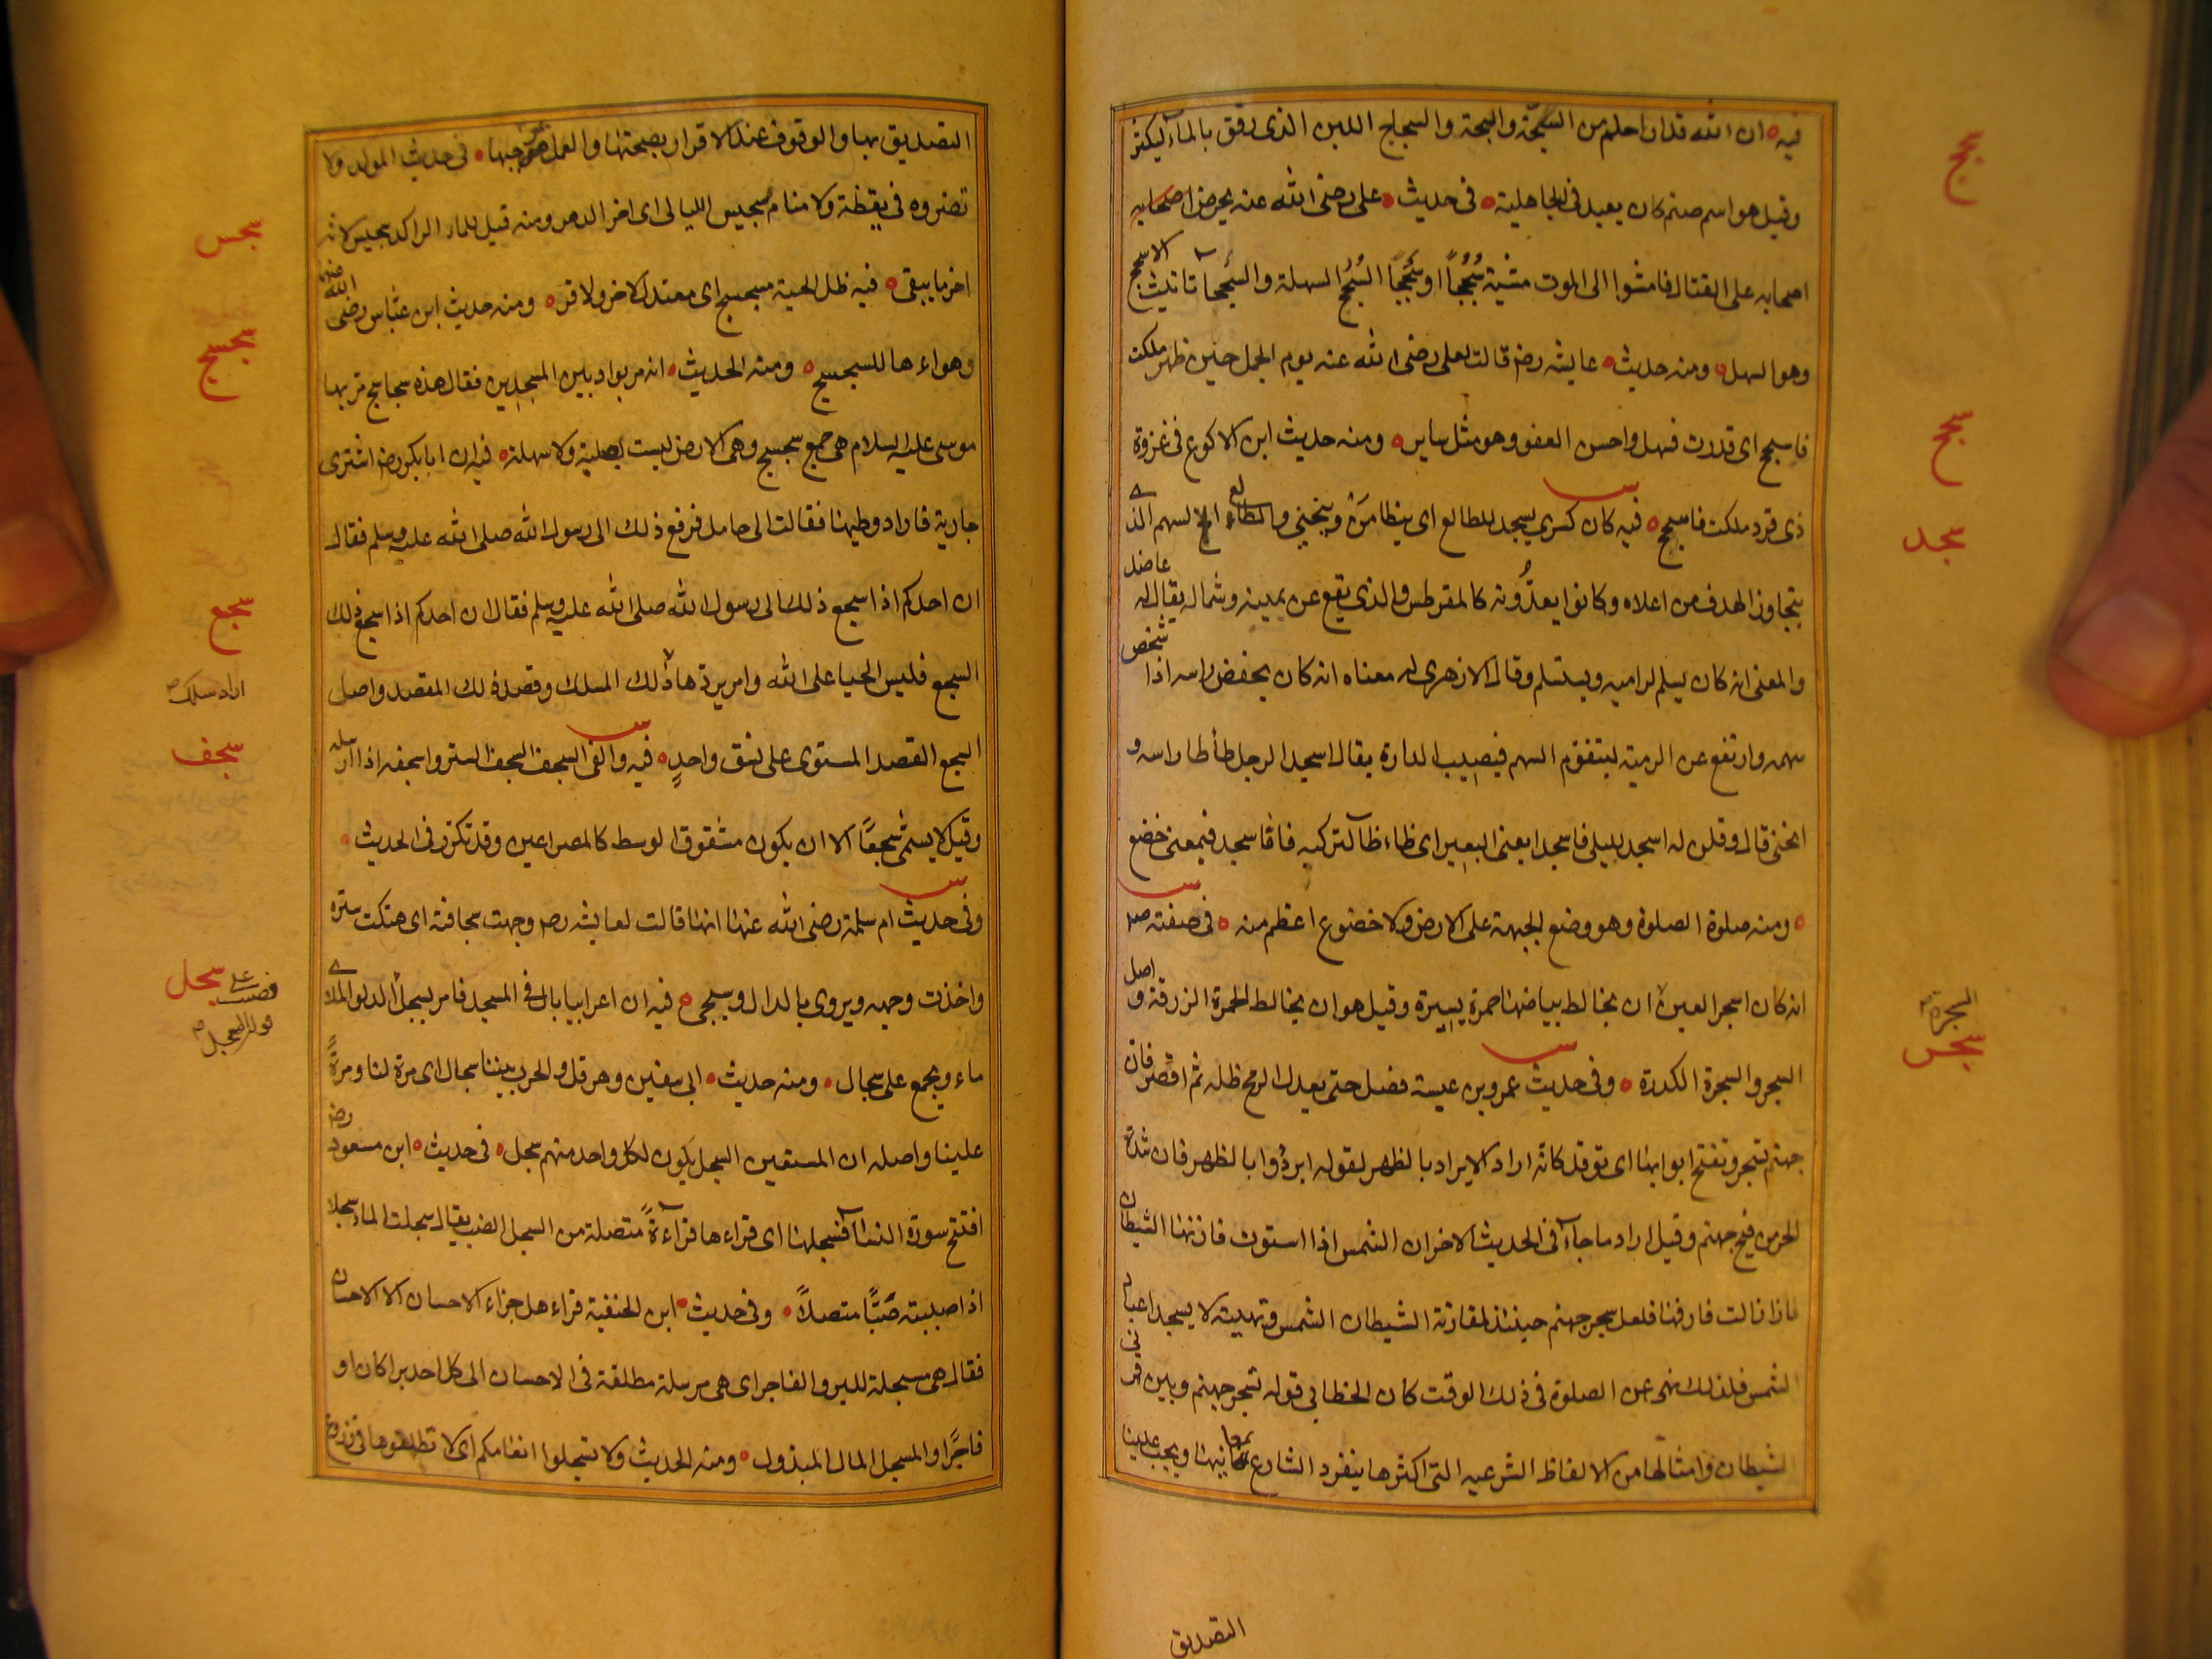 سجج
فيه ان الله قد اراحكم من السجة والبجة والسجاج اللبن الذى رقق بالماء ليكثر
وقيل هو اسم صنم كان يعبد فى الجاهلية فى حديث على رضى الله عنه يحرض اصحابه
اصحابه على القتال فامشوا الى الموت مشية سُجُحًا او سَجْحًا السُجُح السهلة والسجحاء تانيث الاسجح
سجح
وهو السهل ومنه حديث عايشه رضـ قالت لعلى رضى الله عنه يوم الجمل حين ظهر ملكت
فاسجح اى قدرت فسهل واحسن العفو وهو مثل ساير ومنه حديث ابن الاكوع فى غزوة
سجد
ذى قرد ملكت فاسجح فيه كان كسرى يسجد للطالع اى يتطامن وينحنى والطالع السهم الذى
يتجاوز الهدف من اعلاه وكانوا يعدُّونه كالمقرطس والذى يقع عن يمينه وشماله يقال له عاضد
والمعنى انه كان يسلم لراميه ويستسلم وقال الازهرى له معناه انه كان يخفض راسه اذا شخص
سهمه وارتفع عن الرمية ليتقوم السهم فيصيب الدارة يقال اسجد الرجل طأطا راسه و
انحنى قال وقلن له اسجد لليلى فاسجدا يعنى البعير اى طاطا لتركبه فاما سجد فبمعنى خضع
ومنه صلوة الصلوة وهو وضع الجبهة على الارض ولا خضوع اعظم منه فى صفته صم
السجرة
انه كان اسجر العين ان يخالط بياضها حمرة يسيرة وقيل هو ان يخالط الحمرة الزرقة و اصل
سجس
السجر والسجرة الكدرة وفى حديث عمرو بن عبسة فصل حتى يعدل الرمح ظله ثم اقصر فان
جهنم تسجر وتفتح ابوابها اى توقد كانه اراد الابراد بالظهر لقوله ابردوا بالظهر فان شدة
الحر من فيح جهنم وقيل اراد ما جاء فى الحديث الاخر ان الشمس اذا استوت قارنها الشيطان
فاذا زالت فارقها فلعل سجر جهنم حينئذ لمقارنة الشيطان الشمس وتهيئته لا يسجد عباد
الشمس فلذلك نهى عن الصلوة فى ذلك الوقت كان الخطابى قوله تسجر جهنم وبين قرنى
الشيطان وامثالها من الالفاظ الشرعيه التى اكثرها ينفرد الشارع بمعانيها ويجب علينا
التصديق
التصديق بها والوقوف عند الاقرار بصحتها والعمل بموجبها فى حديث المولد ولا
سجس
تضروه فى يقظة ولا منام سجيس الليالى اى اخر الدهر ومنه قيل للماء الراكد سجيس لانه
اخر ما يبقى فيه ظل الجنة سجسج اى معتدل لا حر ولا قر ومنه حديث ابن عباس رضى الله عنهما
سجسج
وهواءها السجسج ومنه الحديث انه مر بواد بين المسجدين فقال هذه سجاسج مر بها
موسى عليه السلام هى جمع سجسج وهى الارض ليست بصلبة ولا سهلة فيه ان ابا بكر رضـ اشترى
جارية فاراد وطيها فقالت انى حامل فرفع ذلك الى رسول الله صلى الله عليه وسلم فقال
سجع
ان احدكم اذا سجع ذلك الى رسول الله صلى الله عليه وسلم فقال ان احدكم اذا سجع ذلك
اراد سلك
السجع فليس الخيار على الله وامر بردها ذلك المسلك وقصد ذلك المقصد واصل
سجف
السجع القصد المستوى على نسق واحدٍ فيه والقى السجف السجف الستر واسجفه اذا ارسله
وقيل لا يسمى سجفًا الا ان يكون مشقوق الوسط كالمصراعين وقد تكرر فى الحديث
وفى حديث ام سلمة رضى الله عنها انها قالت لعايشه رضـ وجهت سجافته اى هتكت ستره
سجل
واخذت وجهه ويروى بالدال وسيجىء فيه ان اعرابيا بال فى المسجد فامر بسجل الدلو الملاى
ماء ويجمع على سجال ومنه حديث ابى سفين وهرقل والحرب بيننا سجال اى مرة لنا ومرةً
علينا واصله ان المستقين السجل يكون لكل واحد منهم سجل فى حديث ابن مسعود رضـ
افتتح سورة النساء فسجلها اى قراءها قراءةً متصلة من السجل الصب يقال سجلت الماء سجلا
اذا صببته صَبًّا متصلاً وفى حديث ابن الحنفية قراء هل جزاء الاحسان الا الاحسان
فقال هى مسجلة للبر والفاجر اى هى مرسلة مطلقة فى الاحسان الى كل احد برا كان او
فاجرًا والمسجل المال المبذول ومنه الحديث ولا تسجلوا انعامكم اى لا تطلقوها فى زروع